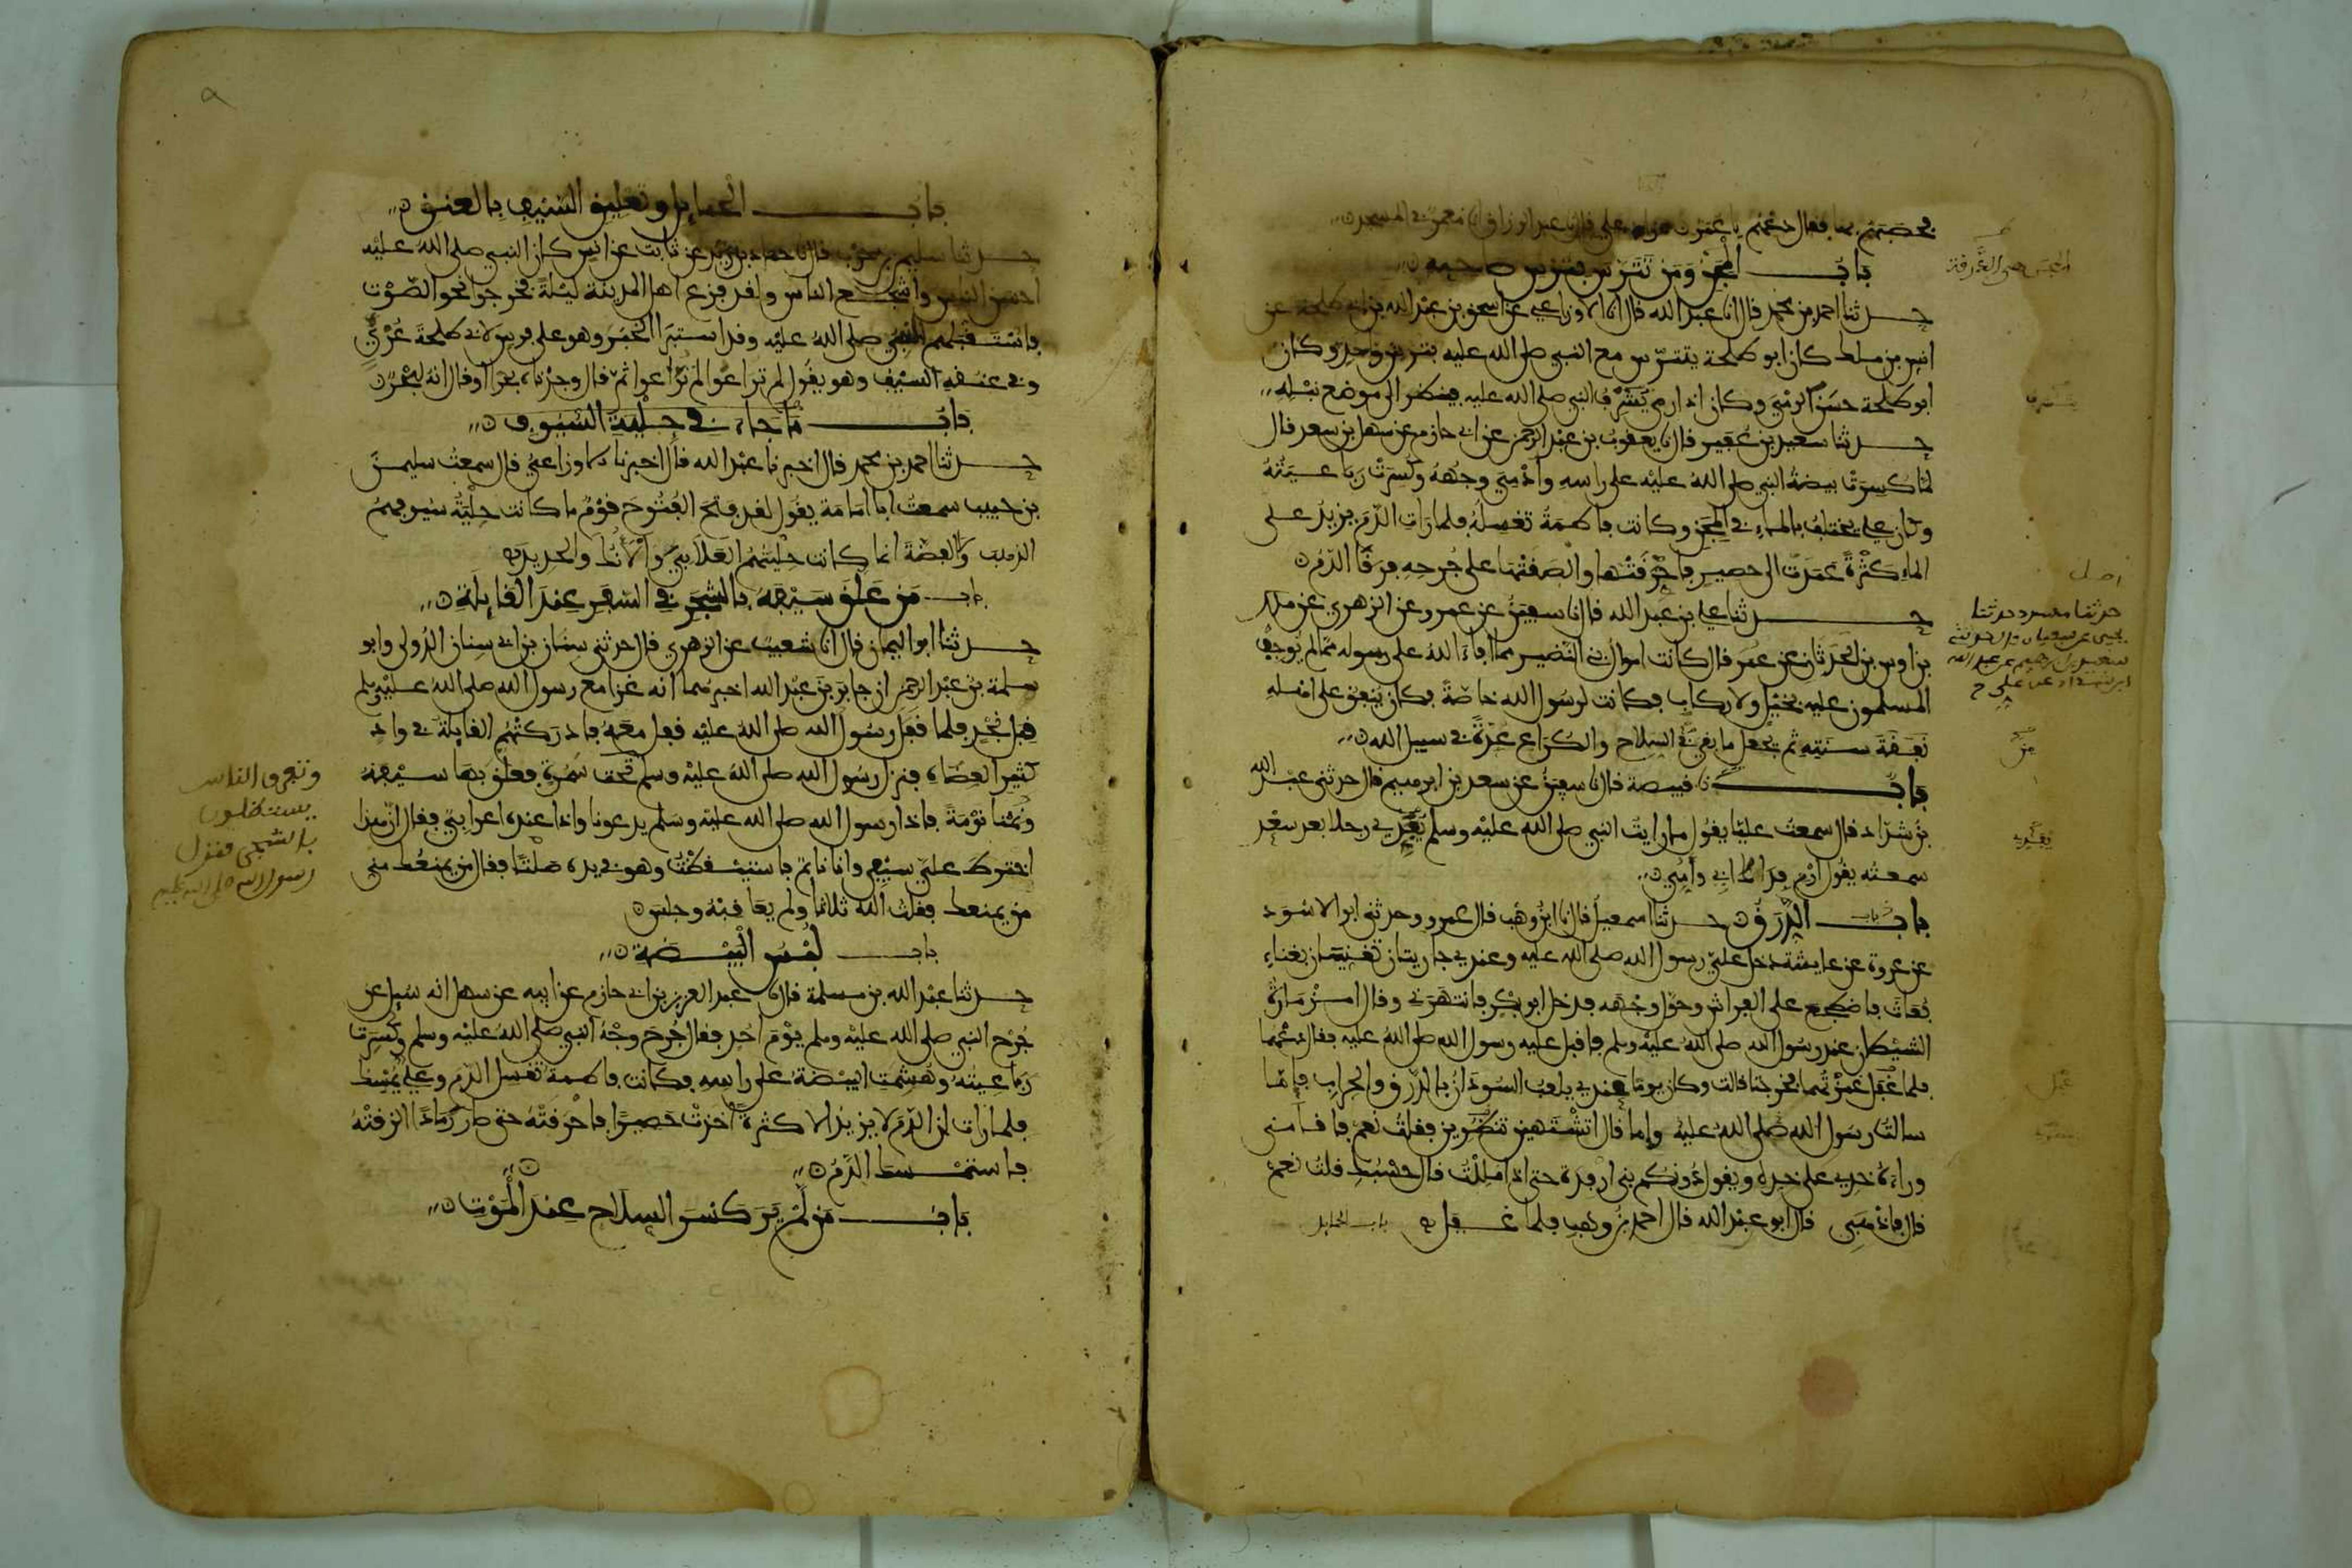 فحصبهم بها فقال دعهم يا عمر زاد علي قال نا عبد الرزاق انا معمر في المسجد
باب المجن ومن تترس بترس صاحبه
حدثنا احمد بن محمد قال انا عبد الله قال انا الاوزاعي عن اسحق بن عبد الله بن ابي طلحة عن
انس بن ملك كان ابو طلحة يتترس مع النبي صلى الله عليه بترس واحد وكان
ابو طلحة حسن الرمي وكان اذا رمى تشرف النبي صلى الله عليه فينظر الى موضع نبله
حدثنا سعيد بن عفير قال نا يعقوب بن عبد الرحمن عن ابي حازم عن سهل بن سعد قال
لما كسرت بيضة النبي صلى الله عليه على راسه وادمي وجهه وكسرت رباعيته
وكان علي يختلف بالماء في المجن وكانت فاطمة تغسله فلما رات الدم يزيد على
الماء كثرة عمدت الى حصير فاحرقتها والصقتها على جرحه فرقا الدم
حدثنا علي بن عبد الله قال نا سفين عن عمرو عن الزهري عن ملك
بن اوس بن الحدثان عن عمر قال كانت اموال بني النضير مما افاء الله على رسوله مما لم يوجف
المسلمون عليه بخيل ولا ركاب فكانت لرسول الله خاصة فكان ينفق على اهله
نفقة سنته ثم يجعل ما بقي في السلاح والكراع عدة في سبيل الله
باب نا قبيصة قال نا سفين عن سعد بن ابرهيم قال حدثني عبد الله
بن شداد قال سمعت عليا يقول ما رايت النبي صلى الله عليه وسلم يفدي رجلا بعد سعد
سمعته يقول ارم فداك ابي وامي
باب الدرق حدثنا اسمعيل قال نا ابن وهب قال عمرو وحدثني ابو الاسود
عن عروة عن عايشة دخل علي رسول الله صلى الله عليه وعندي جاريتان تغنيان بغناء
بعاث فاضطجع على الفراش وحول وجهه فدخل ابو بكر فانتهرني وقال امزمارة
الشيطان عند رسول الله صلى الله عليه وسلم فاقبل عليه رسول الله صلى الله عليه فقال دعهما
فلما غفل غمزتهما فخرجتا قالت وكان يوما عندي يلعب السودان بالدرق والحراب فاما
سالت رسول الله صلى الله عليه واما قال اتشتهين تنظرين فقلت نعم فاقامني
وراءه خدي على خده ويقول دونكم بني ارفدة حتى اذا مللت قال حسبك قلت نعم
قال فاذهبي قال ابو عبد الله قال احمد بن وهب فلما غفل باب الحمايل
اصل
حدثنا مسدد حدثنا
يحيى عن سفيان قال حدثني
سعد بن ابرهيم عن عبد الله
ابن شداد عن علي ح
باب الحمايل وتعليق السيف بالعنق
حدثنا سليمن بن حرب قال نا حماد بن زيد عن ثابت عن انس كان النبي صلى الله عليه
احسن الناس واشجع الناس ولقد فزع اهل المدينة ليلة فخرجوا نحو الصوت
فاستقبلهم النبي صلى الله عليه وقد استبرا الخبر وهو على فرس لابي طلحة عري
وفي عنقه السيف وهو يقول لم تراعوا لم تراعوا ثم قال وجدناه بحرا او قال انه لبحر
باب ما جاء في حلية السيوف
حدثنا احمد بن محمد قال اخبرنا عبد الله قال اخبرنا الاوزاعي قال سمعت سليمن
بن حبيب سمعت ابا امامة يقول لقد فتح الفتوح قوم ما كانت حلية سيوفهم
الذهب ولا الفضة انما كانت حليتهم العلابي والانك والحديد
باب من علق سيفه بالشجر في السفر عند القايلة
حدثنا ابو اليمان قال انا شعيب عن الزهري قال حدثني سنان بن ابي سنان الدولي وابو
سلمة بن عبد الرحمن ان جابر بن عبد الله اخبرهما انه غزا مع رسول الله صلى الله عليه وسلم
قبل نجد فلما قفل رسول الله صلى الله عليه قفل معه فادركتهم القايلة في واد
كثير العضاه فنزل رسول الله صلى الله عليه وسلم تحت سمرة فعلق بها سيفه
ونمنا نومة فاذا رسول الله صلى الله عليه وسلم يدعونا واذا عنده اعرابي فقال ان هذا
اخترط علي سيفي وانا نايم فاستيقظت وهو في يده صلتا فقال من يمنعك مني
من يمنعك فقلت الله ثلاثا ولم يعاقبه وجلس
باب لبس البيضة
حدثنا عبد الله بن مسلمة قال نا عبد العزيز بن ابي حازم عن ابيه عن سهل انه سيل عن
جرح النبي صلى الله عليه وسلم يوم احد فقال جرح وجه النبي صلى الله عليه وسلم وكسرت
رباعيته وهشمت البيضة على راسه فكانت فاطمة تغسل الدم وعلي يمسك
فلما رات ان الدم لا يزيد الا كثرة اخذت حصيرا فاحرقته حتى صار رمادا الزقته
فاستمسك الدم
باب من لم ير كسر السلاح عند الموت
وتفرق الناس
يستظلون
بالشجر فنزل
رسول الله صلى الله عليه